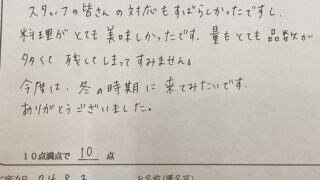 スタッフの皆さんの対応もすばらしかったですし、
料理がとても美味しかったです。量もとても品数が
多くて残してしまってすみません。
今度は、冬の時期に来てみたいです。
ありがとうございました。
10点満点で 10 点